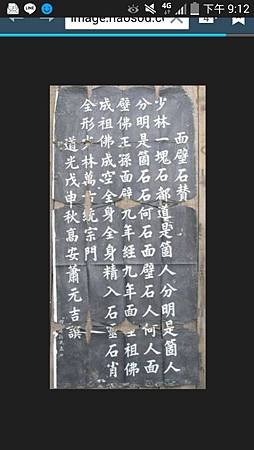 4G 下午 9:12
image.haosou.c
面壁石賛
少林一塊石都道是箇人分明是箇人
分明是箇石石何石面壁石人何人面
壁佛王孫面壁九年經九年面壁祖佛
成祖佛成空全身全身精入石靈石肖
全形少林萬古統宗門
道光戊申秋高安蕭元吉譔